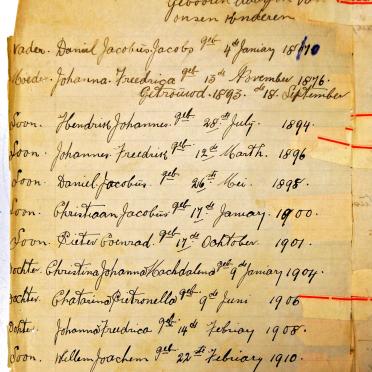 Gebooren daagen van
onsen kinderen
Vader. Daniel Jacobus Jacobs geb 4de Janiary 1870
Moeder. Johanna Freedrica geb 13de November 1876.
Getrouwd. 1893. de 18. September
Soon. Hendrik Johannes. geb 28ste July. 1894.
Soon. Johannes Freedrik geb 12de Marth. 1896
Soon. Daniel Jacobus. geb 26ste Mei. 1898.
Soon. Christiaan Jacobus geb 17de January. 1900.
Soon. Pieter Coenrad. geb 17de Ochtober. 1901.
Dochter. Christina Johanna Machdalena geb 9de Janiary 1904.
Dochter. Chatarina Pietronella geb 9de Juni 1906
Dochter. Johanna Freedrica geb 14de Febriary 1908.
Soon. Willem Joachem geb 22ste Febriary 1910.